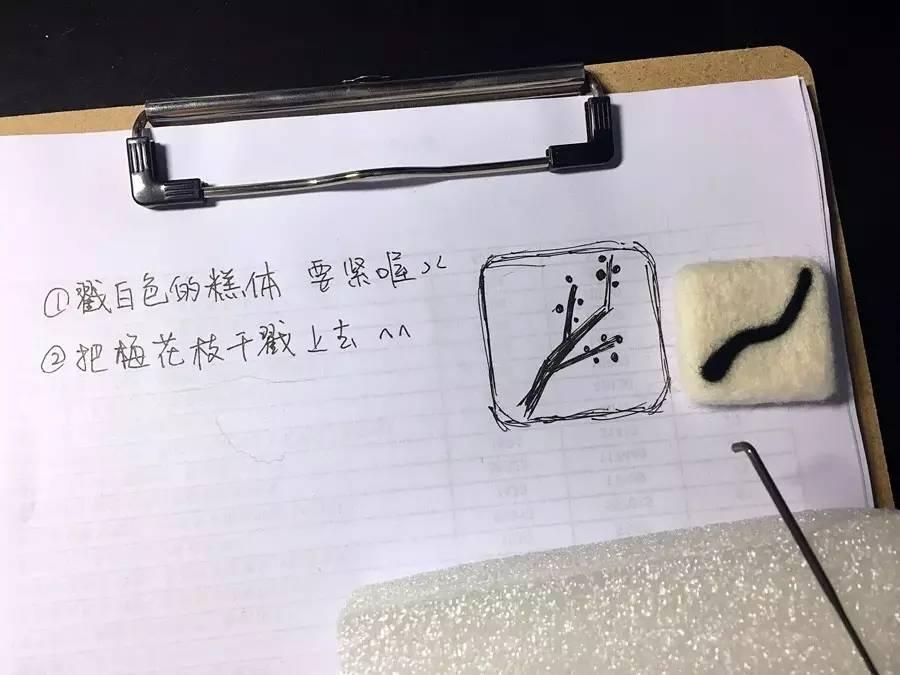 ①戳白色的糕体 要紧喔
②把梅花枝干戳上去 ^^